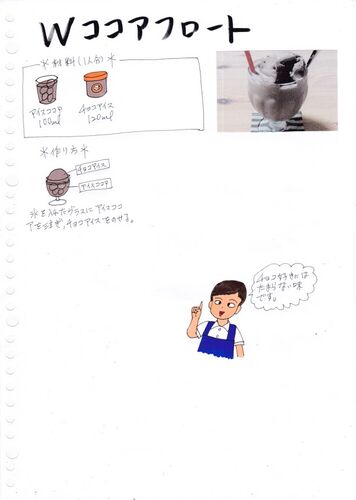 Wココアフロート
＊材料(1人分)＊
アイスココア
100ml
チョコアイス
120ml
＊作り方＊
チョコアイス
アイスココア
氷を入れたグラスにアイスココ
アをそそぎ,チョコアイスをのせる。
チョコ好きには
たまらない味
です。